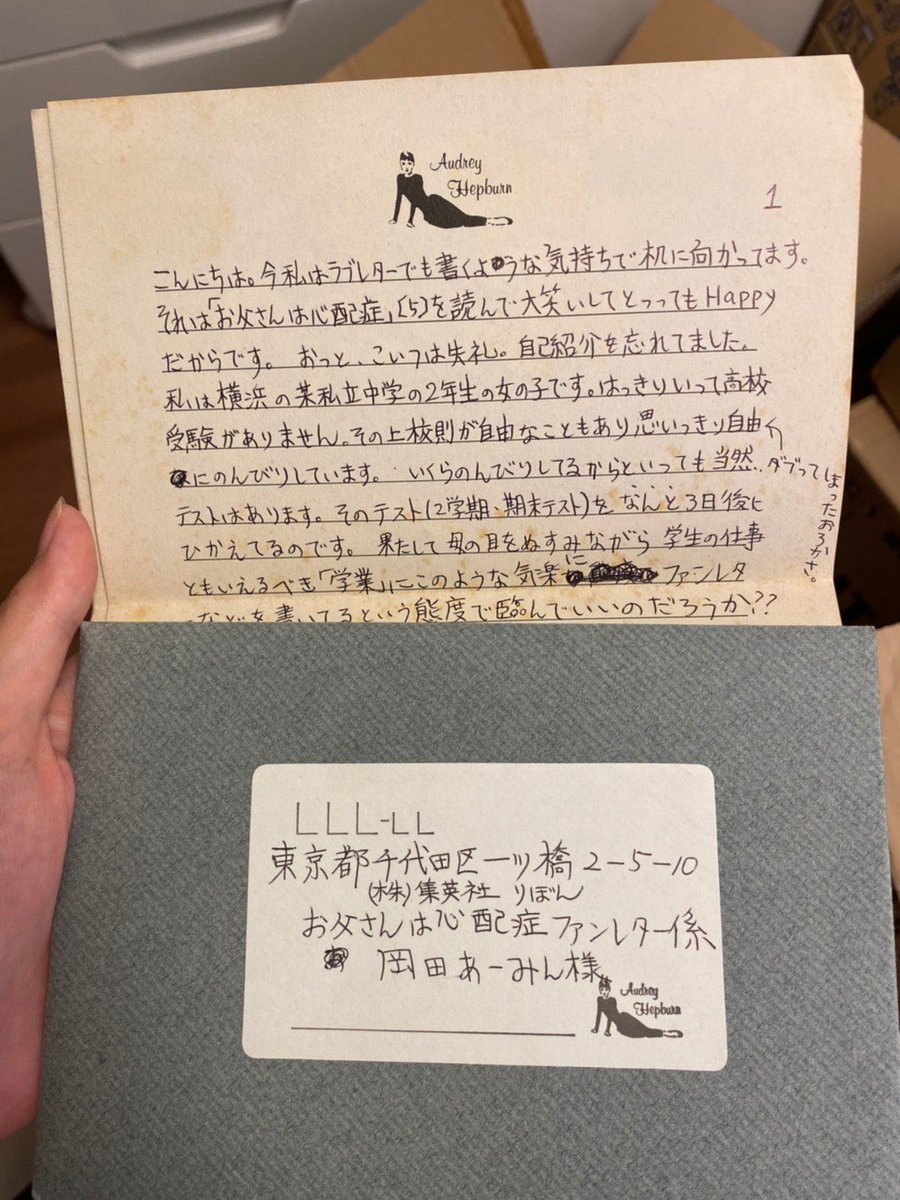 Audrey
Hepburn
1
こんにちは。今私はラブレターでも書くような気持ちで机に向かってます。
それは「お父さんは心配症」(5)を読んで大笑いしてとってもHappy
だからです。 おっと、こいつは失礼。自己紹介を忘れてました。
私は横浜の某私立中学の2年生の女の子です。はっきりいって高校
受験がありません。その上校則が自由なこともあり思いっきり自由
にのんびりしています。 いくらのんびりしてるからといっても当然‥
ダブってしまったおろかさ。
テストはあります。そのテスト(2学期・期末テスト)を なんと3日後に
ひかえてるのです。 果たして母の目をぬすみながら 学生の仕事
ともいえるべき「学業」にこのような気楽に ファンレタ
ーなどを書いてるという態度で臨んでいいのだろうか??
LLL-LL
東京都千代田区一ツ橋2-5-10
(株)集英社 りぼん
お父さんは心配症ファンレター係
岡田あーみん様
Audrey
Hepburn